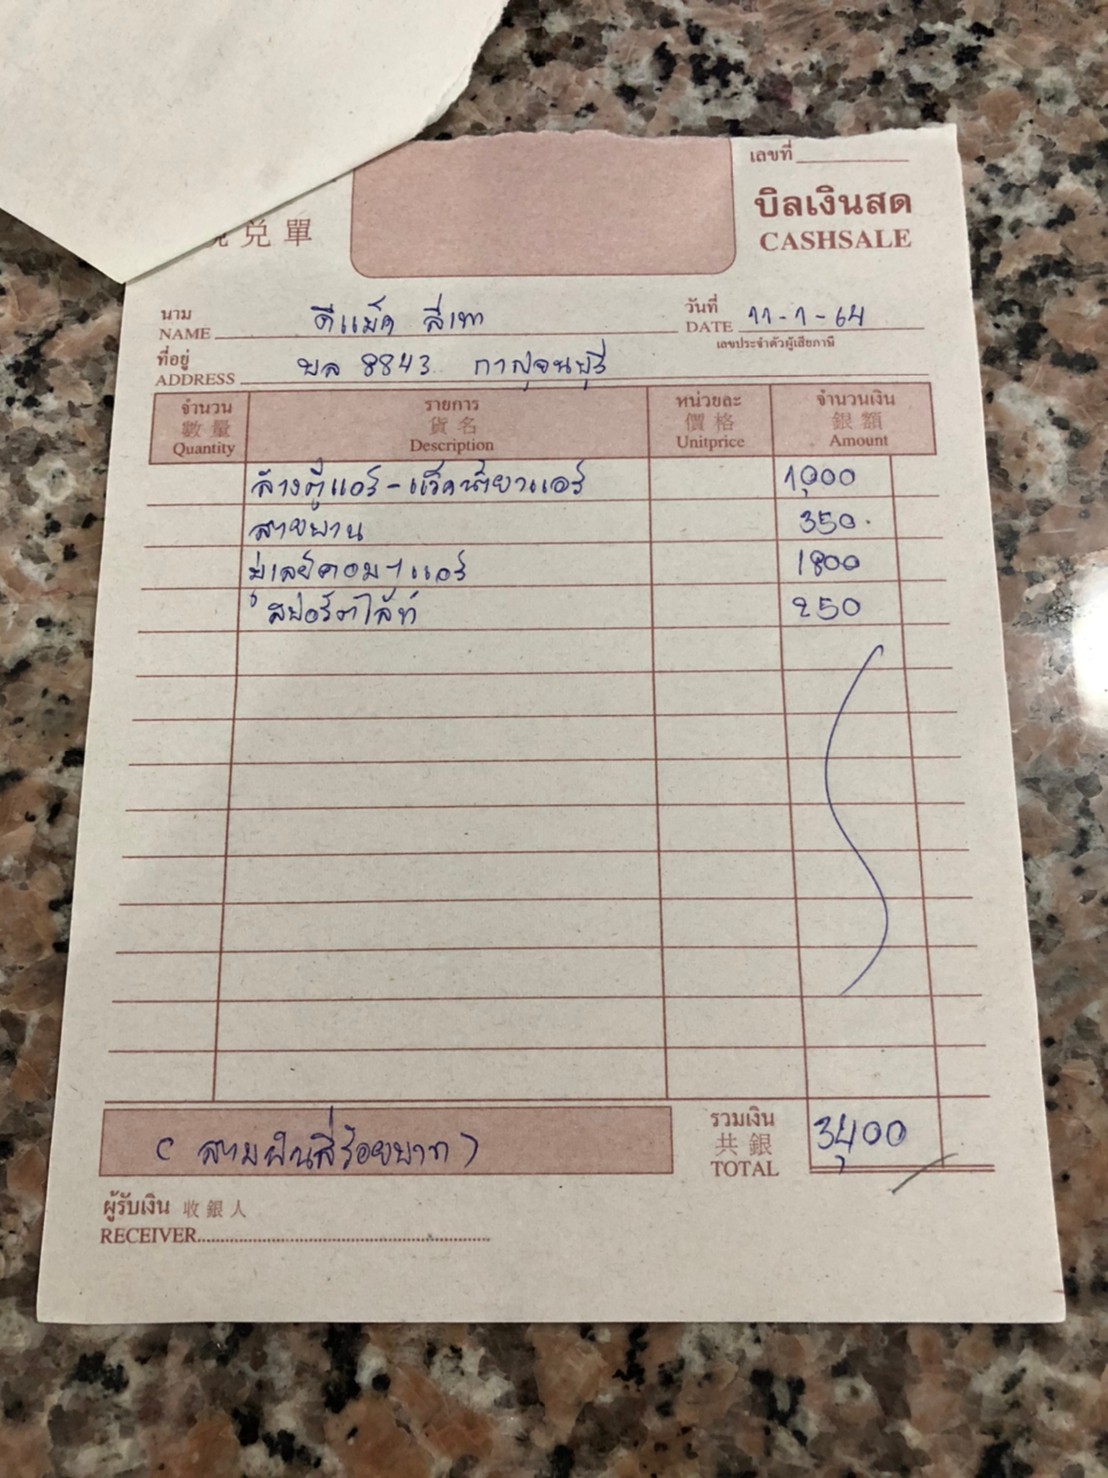 เลขที่
兑單
บิลเงินสด
CASHSALE
นาม
NAME ดีแม็ค สีเทา
วันที่
DATE 11-1-64
เลขประจำตัวผู้เสียภาษี
ที่อยู่
ADDRESS บล 8843 กาญจนบุรี
จำนวน รายการ หน่วยละ จำนวนเงิน
數量 貨名 價格 銀額
Quantity Description Unitprice Amount
ล้างตู้แอร์-แว็คน้ำยาแอร์ 1,000
สายพาน 350.
มู่เลย์คอมฯแอร์ 1800
สปอร์ตไล้ท์ 250
(สามพันสี่ร้อยบาท)
รวมเงิน
共銀
TOTAL 3,400
ผู้รับเงิน 收銀人
RECEIVER